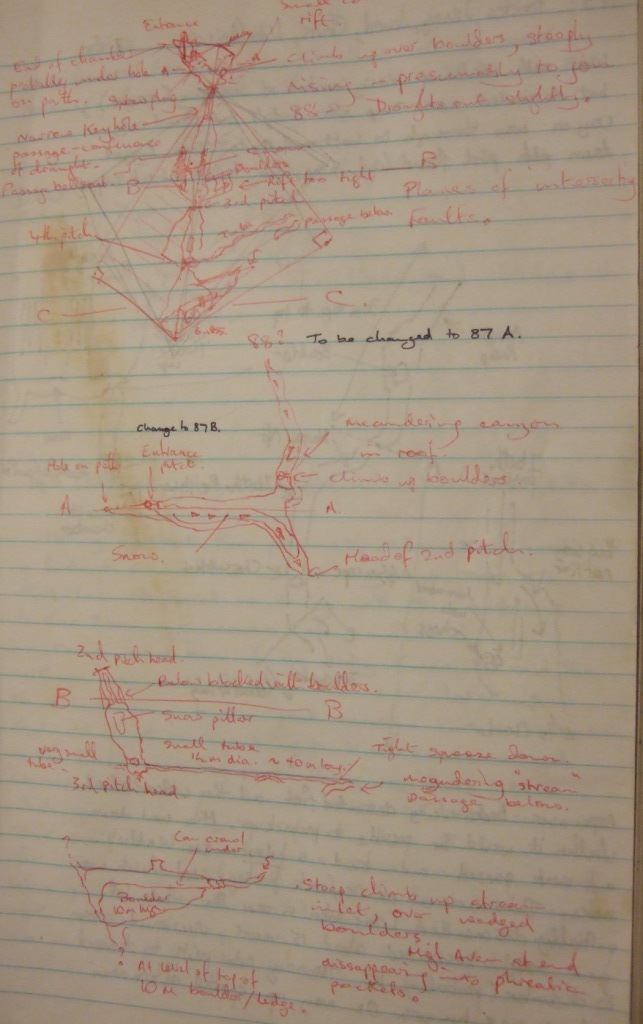 Entrance
rift.
End of chamber
probably under hole
on path.
Snow plug
A
A
Climb up over boulders, steeply
rising - presumably to join
88 - Draughts out slightly.
Narrow Keyhole
passage - continuance
of draught.
Boulders
B
B
Rift too tight
3rd pitch
Planes of intersecting
faults.
4th pitch
Tube
passage below
C
C.
88?
To be changed to 87 A.
change to 87B.
meandering canyon
in roof.
Hole on path
Entrance
pitch.
climb up boulders.
A
A.
Snow.
Head of 2nd pitch.
2nd pitch head.
Below blocked with boulders.
B
B
Snow pillar
very small
tube
Small tube
1½m dia. ~ 40m long.
Tight squeeze down.
3rd pitch head
meandering "stream"
passage below.
?
Can crawl
under
Boulder
10m high
Steep climb up stream
inlet, over wedged
boulders
High Aven at end
dissappearing into phreatic
pockets.
?
At level of top of
10m boulder/ledge.